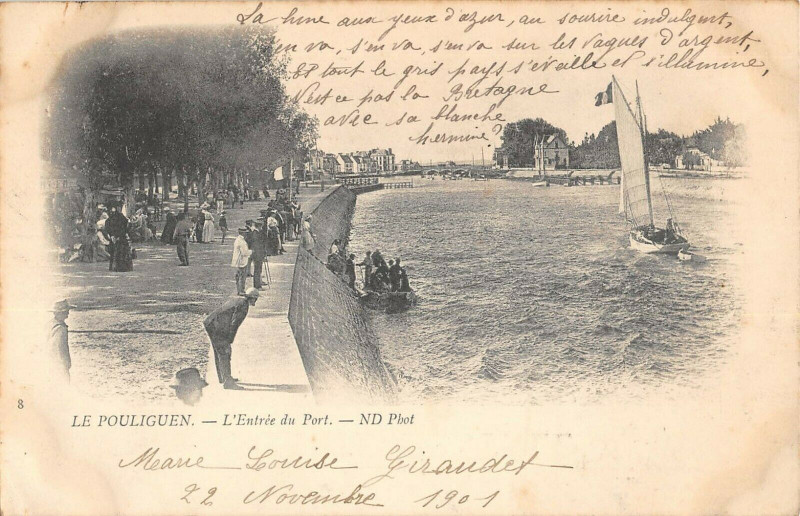 La lune aux yeux d'azur, au sourire indulgent,
s'en va, s'en va, s'en va sur les vagues d'argent,
Et tout le gris pays s'éveille et s'illumine,
N'est ce pas la Bretagne
avec sa blanche
hermine?
8
LE POULIGUEN. — L'Entrée du Port. — ND Phot
Marie Louise Giraudet
22 Novembre 1901